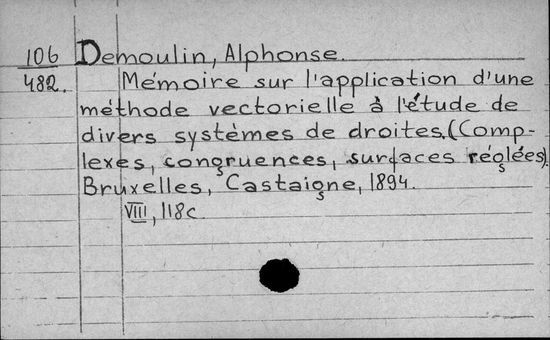 106 Demoulin, Alphonse.
482. Mémoire sur l'application d'une
méthode vectorielle à l'étude de
divers systèmes de droites. (Comp-
lexes, congruences, surfaces réglées).
Bruxelles, Castaigne, 1894.
VIII, 118c.